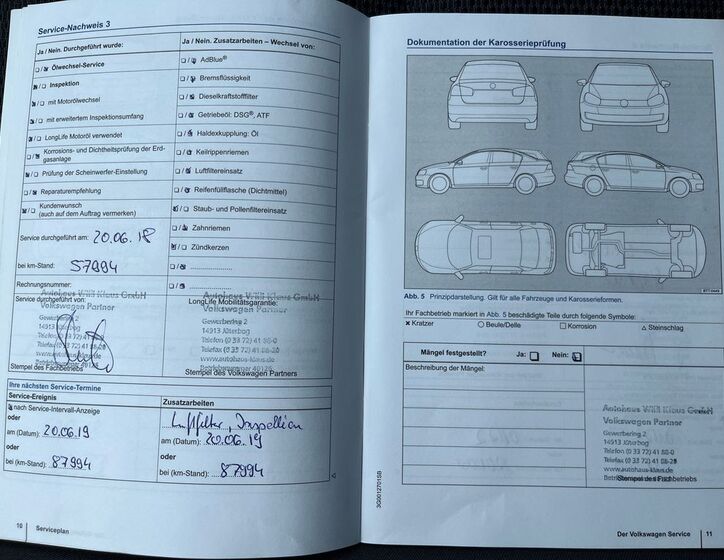 Service-Nachweis 3
Ja / Nein. Durchgeführt wurde:
Ölwechsel-Service
Inspektion
mit Motorölwechsel
mit erweitertem Inspektionsumfang
LongLife Motoröl verwendet
Korrosions- und Dichtheitsprüfung der Erd-
gasanlage
Prüfung der Scheinwerfer-Einstellung
Reparaturempfehlung
Kundenwunsch
(auch auf dem Auftrag vermerken)
Service durchgeführt am: 20.06.18
bei km-Stand: 57994
Rechnungsnummer:
Service durchgeführt von:
Autohaus Willi Klaus GmbH
Volkswagen Partner
Gewerbering 2
14913 Jüterbog
Stempel des Fachbetriebs
Ja / Nein. Zusatzarbeiten – Wechsel von:
AdBlue®
Bremsflüssigkeit
Dieselkraftstofffilter
Getriebeöl: DSG®, ATF
Haldexkupplung: Öl
Keilrippenriemen
Luftfiltereinsatz
Reifenfüllflasche (Dichtmittel)
Staub- und Pollenfiltereinsatz
Zahnriemen
Zündkerzen
LongLife Mobilitätsgarantie:
Autohaus Willi Klaus GmbH
Volkswagen Partner
Gewerbering 2
14913 Jüterbog
Telefon (0 33 72) 41 88-0
Telefax (0 33 72) 41 88-20
www.autohaus-klaus.de
Stempel des Volkswagen Partners
Ihre nächsten Service-Termine
Service-Ereignis
nach Service-Intervall-Anzeige
oder
am (Datum): 20.06.19
oder
bei (km-Stand): 87994
Zusatzarbeiten
Luftfilter, Inspektion
am (Datum): 20.06.19
oder
bei (km-Stand): 87994
10 Serviceplan
Dokumentation der Karosserieprüfung
Abb. 5 Prinzipdarstellung. Gilt für alle Fahrzeuge und Karosserieformen.
Ihr Fachbetrieb markiert in Abb. 5 beschädigte Teile durch folgende Symbole:
Kratzer Beule/Delle Korrosion Steinschlag
Mängel festgestellt? Ja: Nein:
Beschreibung der Mängel:
Autohaus Willi Klaus GmbH
Volkswagen Partner
Gewerbering 2
14913 Jüterbog
Telefon (0 33 72) 41 88-0
Telefax (0 33 72) 41 88-20
www.autohaus-klaus.de
Stempel des Fachbetriebs
3G0012701SB
Der Volkswagen Service 11